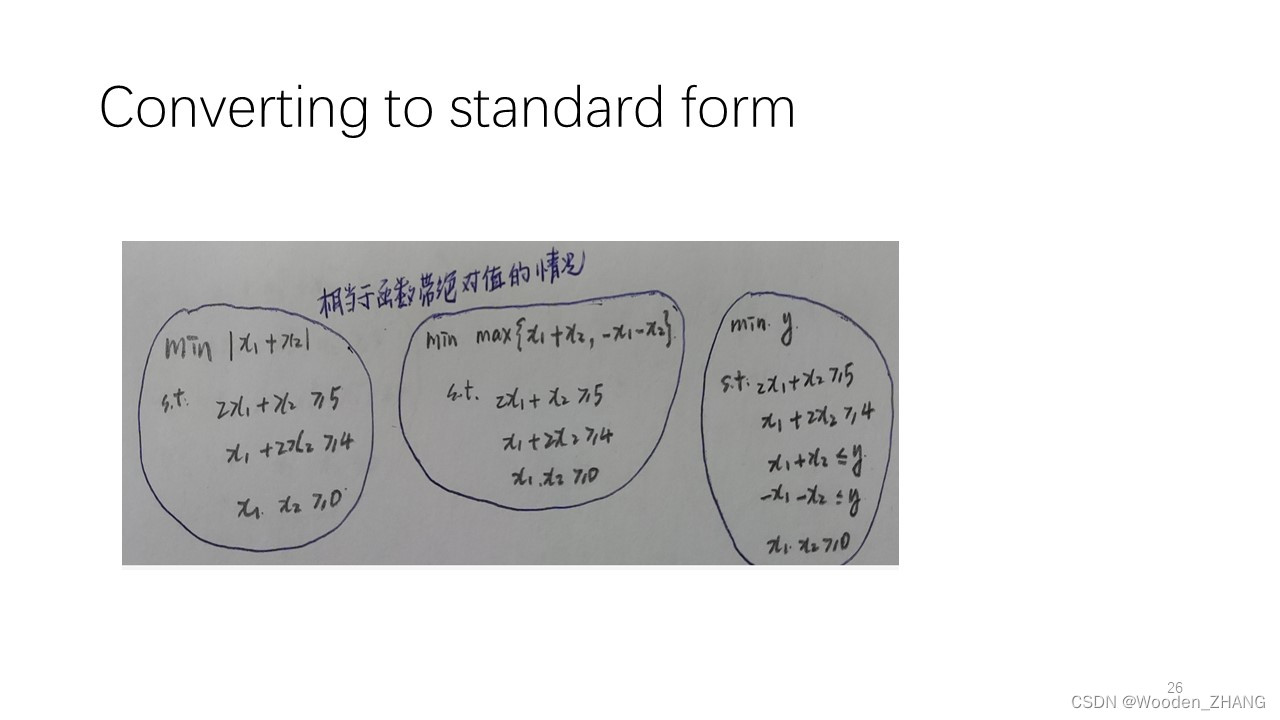 Converting to standard form
相当于函数带绝对值的情况
min |x₁+x₂|
s.t. 2x₁+x₂ ≥5
x₁+2x₂ ≥4
x₁. x₂ ≥0
min max{x₁+x₂, -x₁-x₂}.
s.t. 2x₁+x₂ ≥5
x₁+2x₂ ≥4
x₁.x₂ ≥0
min. y.
s.t. 2x₁+x₂ ≥5
x₁+2x₂ ≥4
x₁+x₂ ≤y.
-x₁-x₂ ≤y
x₁. x₂ ≥0
26
CSDN @Wooden_ZHANG